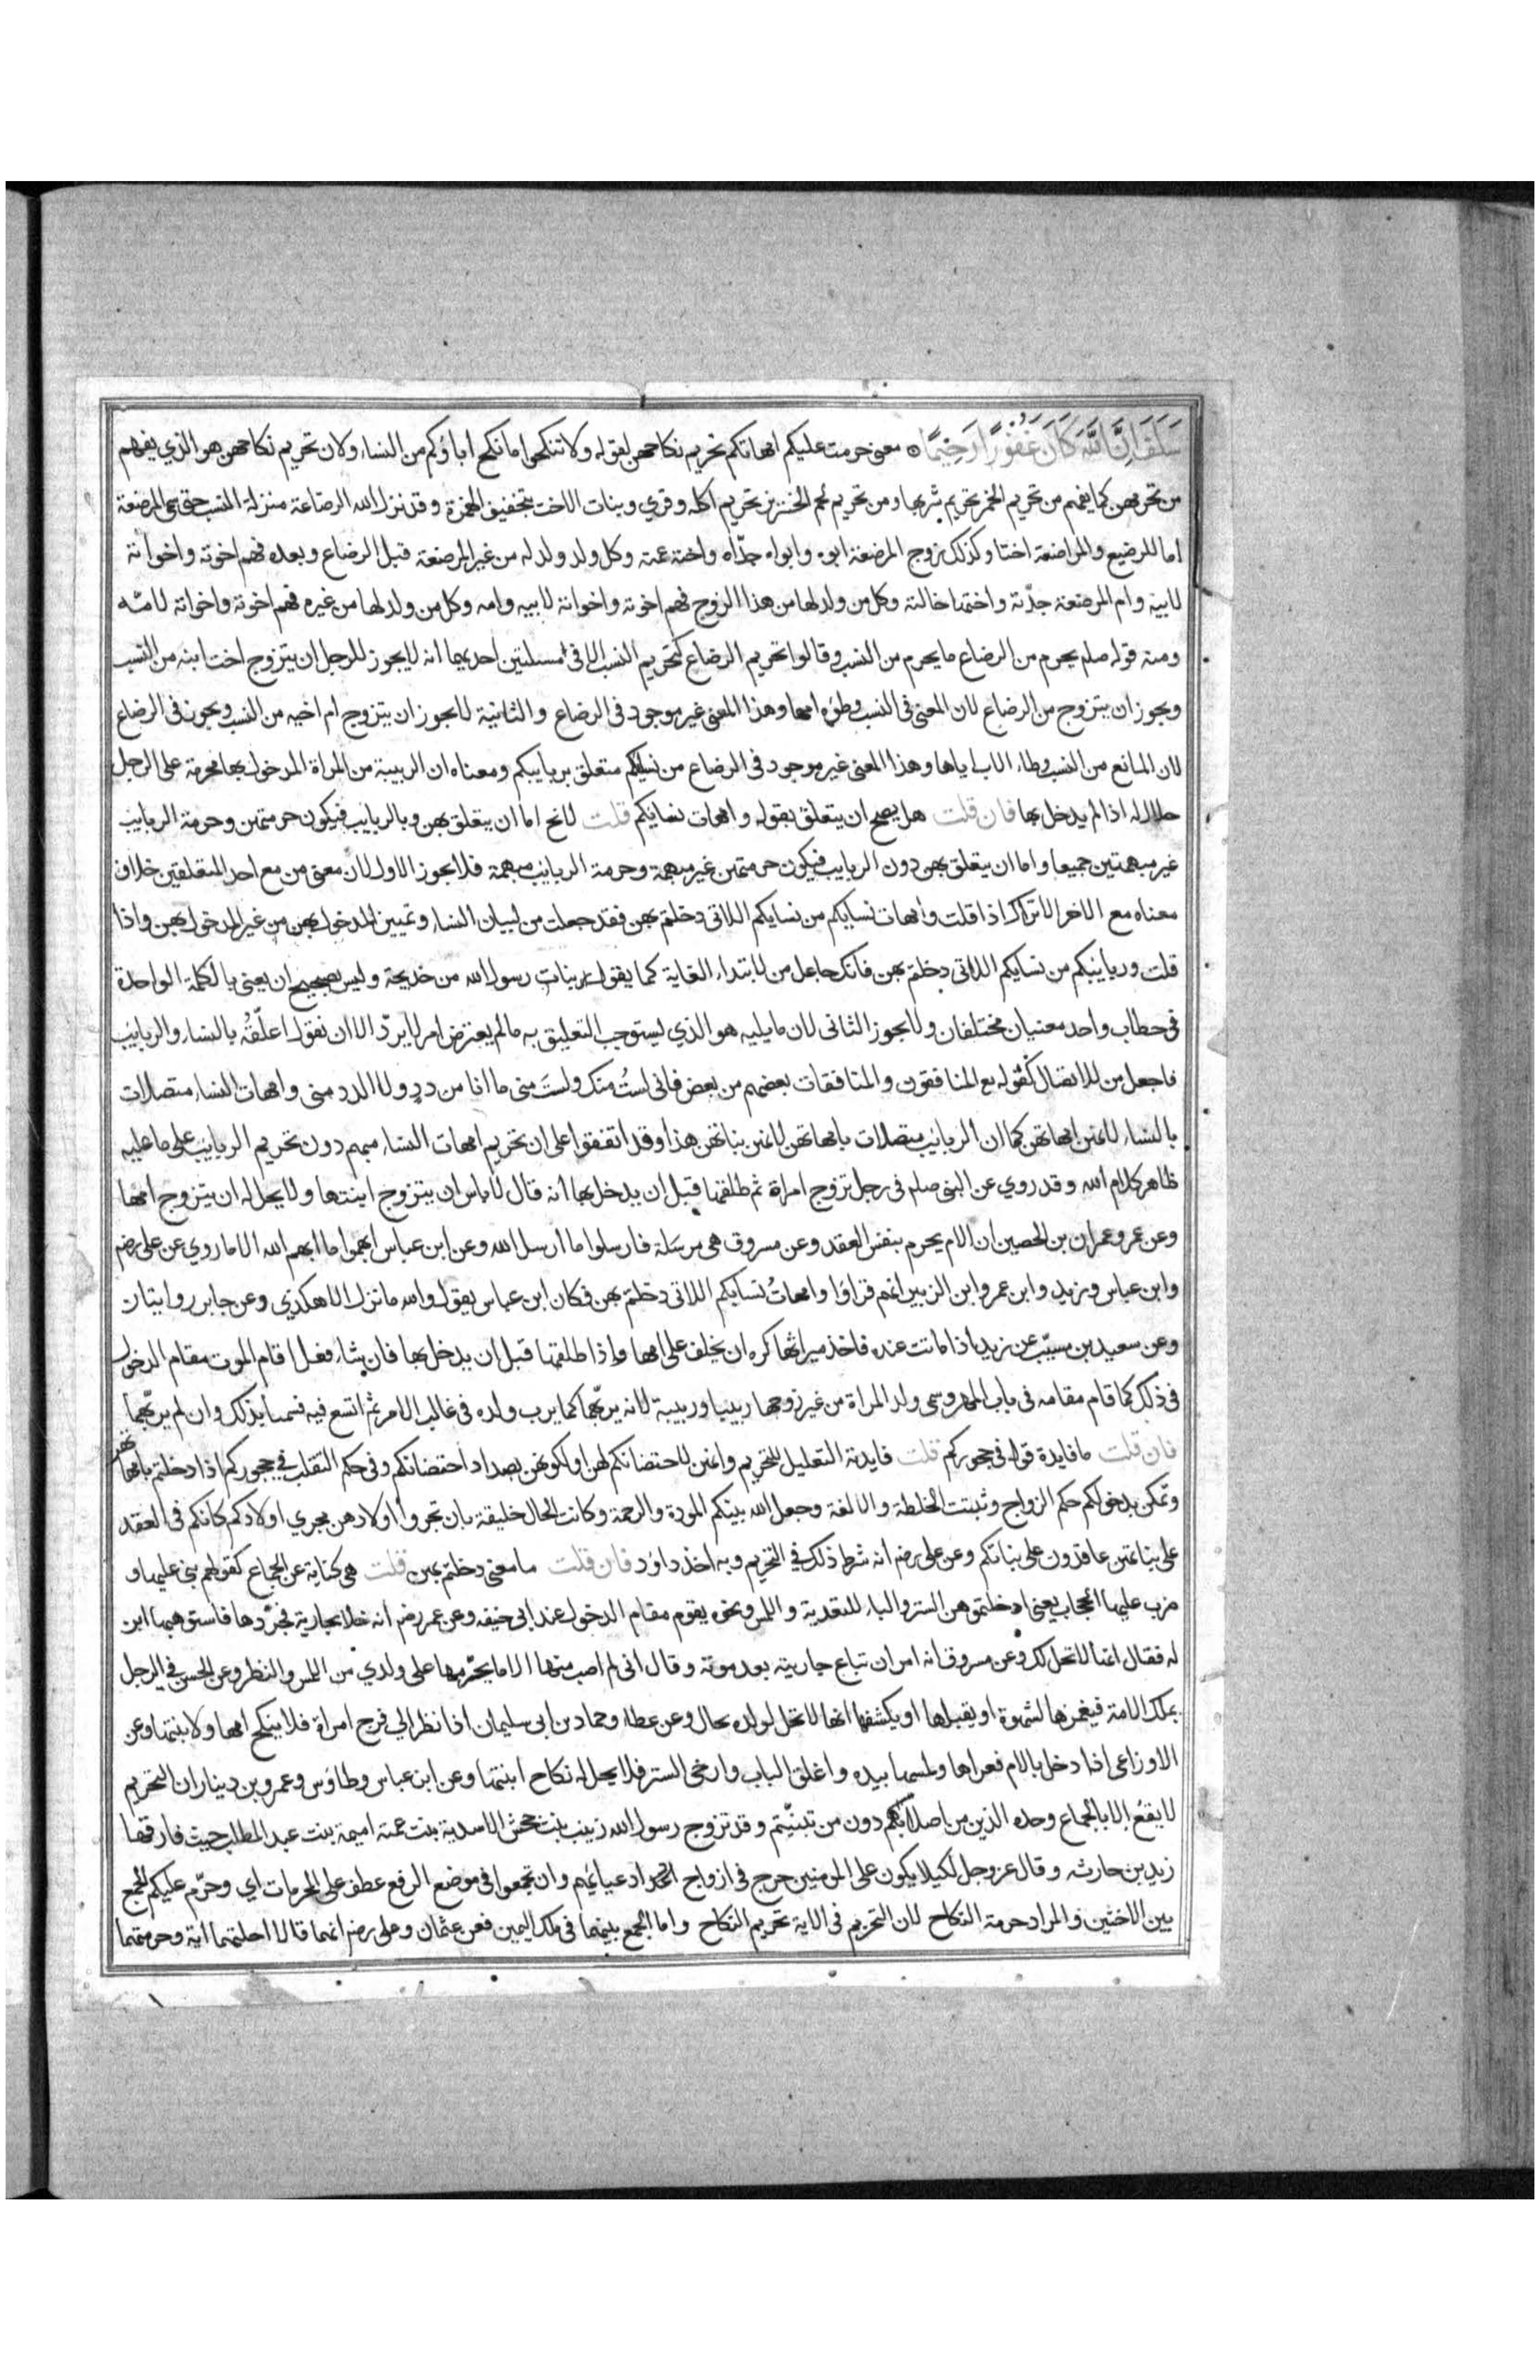 سَلَفَ إِنَّ اللَّهَ كَانَ غَفُورًا رَحِيمًا ه معنى حرمت عليكم امهاتكم تحريم نكاحهن لقوله ولا تنكحوا ما نكح اباؤكم من النساء ولان تحريم نكاحهن هو الذي يفهم
من تحريمهن كما يفهم من تحريم الخمر تحريم شربها ومن تحريم لحم الخنزير تحريم اكله وقري وبنات الاخت بتخفيف الهمزة وقد نزل الله الرضاعة منزلة النسب حتى سمى المرضعة
اما للرضيع والمراضعة اختا وكذلك زوج المرضعة ابوه وابواه جدّاه واخته عمته وكل ولد ولد له من غير المرضعة قبل الرضاع وبعده فهم اخوته واخواته
لابيه وام المرضعة جدّته واختها خالته وكل من ولد لها من هذا الزوج فهم اخوته واخواته لابيه وامه وكل من ولد لها من غيره فهم اخوته واخواته لامّه
ومنه قوله صلم يحرم من الرضاع ما يحرم من النسب وقالوا تحريم الرضاع كتحريم النسب الا في مسئلتين احديهما انه لا يجوز للرجل ان يتزوج اخت ابنه من النسب
ويجوز ان يتزوج من الرضاع لان المعنى في النسب وطؤه امها وهذا المعنى غير موجود في الرضاع والثانية لا يجوز ان يتزوج ام اخيه من النسب ويجوز في الرضاع
لان المانع من النسب وطاء الاب اياها وهذا المعنى غير موجود في الرضاع من نسايكم متعلق بربايبكم ومعناه ان الربيبة من المراة المدخول بها محرمة على الرجل
حلال له اذا لم يدخل بها فان قلت هل يصح ان يتعلق بقوله وامهات نسايكم قلت لا تخ اما ان يتعلق بهن وبالربايب فيكون حرمتهن وحرمة الربايب
غير مبهمتين جميعا واما ان يتعلق بهن دون الربايب فيكون حرمتهن غير مبهمة وحرمة الربايب مبهمة فلا يجوز الاول لان معنى من مع احد المتعلقين خلاف
معناه مع الاخر الا تراك اذا قلت وامهات نسايكم من نسايكم اللاتي دخلتم بهن فقد جعلت من لبيان النساء وتميين المدخول بهن من غير المدخول بهن واذا
قلت وربايبكم من نسايكم اللاتي دخلتم بهن فانك جاعل من لابتداء الغاية كما يقول بنات رسول الله من خديجة وليس بصحيح ان يعنى بالكلمة الواحدة
في خطاب واحد معنيان مختلفان ولا يجوز الثاني لان ما يليه هو الذي يستوجب التعليق به ما لم يعترض امر لا يردّ الا ان نقول اعلّقُه بالنساء والربايب
فاجعل من للاتصال كقوله تع المنافقون والمنافقات بعضهم من بعض فاني لستُ منك ولستَ مني ما انا من ددٍ ولا الدد مني وامهات النساء متصلات
بالنساء لانهن امهاتهن كما ان الربايب متصلات بامهاتهن لانهن بناتهن هذا وقد اتفقوا على ان تحريم امهات النساء مبهم دون تحريم الربايب على ما عليه
ظاهر كلام الله وقد روي عن النبي صلم في رجل تزوج امراة ثم طلقها قبل ان يدخل بها انه قال لا باس ان يتزوج ابنتها ولا يحل له ان يتزوج امها
وعن عمر وعمران بن الحصين ان الام يحرم بنفس العقد وعن مسروق هي مرسَلة فارسلوا ما ارسل الله وعن ابن عباس ابهموا ما ابهم الله الا ما روي عن علي رضم
وابن عباس وزيد وابن عمر وابن الزبير انهم قراؤا وامهاتُ نسايكم اللاتي دخلتم بهن فكان ابن عباس يقول والله ما نزل الا هكذي وعن جابر روايتان
وعن سعيد بن مسيّب عن زيد اذا ماتت عنده فاخذ ميراثها كره ان يخلف على امها واذا طلقها قبل ان يدخل بها فان شاء فعل اقام الموت مقام الدخول
في ذلك كما قام مقامه في باب المهر وسمى ولد المراة من غير زوجها ربيبا وربيبة لانه يربّهما كما يرب ولده في غالب الامر ثم اتسع فيه فسميا بذلك وان لم يربّهما
فان قلت ما فايدة قوله في حجوركم قلت فايدته التعليل للتحريم وانهن لاحتضانكم لهن او لكونهن بصدد احتضانكم وفي حكم التقلب في حجوركم اذا دخلتم بامهاتهن
وتمكن بدخولكم حكم الزواج وثبتت الخلطة والالفة وجعل الله بينكم المودة والرحمة وكانت الحال خليقة بان تجروا اولادهن مجري اولادكم كانكم في العقد
على بناتهن عاقدون على بناتكم وعن علي رضم انه شرط ذلك في التحريم وبه اخذ داؤد فان قلت ما معنى دخلتم بهن قلت هي كناية عن الجماع كقولهم بنى عليها و
ضرب عليها الحجاب يعني ادخلتموهن الستر والباء للتعدية واللمس ونحوه يقوم مقام الدخول عند ابي حنيفه وعن عمر رضم انه خلا بجارية فجرّدها فاستوهبها ابن
له فقال انها لا تحل لك وعن مسروق انه امر ان تباع جاريته بعد موته وقال اني لم اصب منها الا ما يحرّمها على ولدي من اللمس والنظر وعن الحسن في الرجل
يملك الامة فيغمزها لشهوة او يقبلها او يكشفها انها لا تحل لولده بحال وعن عطاء وحماد بن ابي سليمان اذا نظر الي فرج امراة فلا ينكح امها ولا ابنتها وعن
الاوزاعي اذا دخل بالام فعراها ولمسها بيده واغلق الباب وارخى الستر فلا يحل له نكاح ابنتها وعن ابن عباس وطاؤس وعمرو بن دينار ان التحريم
لا يقعُ إلا بالجماع وحده الذين من اصلابكم دون من تبنيّتم وقد تزوج رسول الله زينب بنت جحش الاسدية بنت عمته اميمة بنت عبد المطلب حيث فارقها
زيد بن حارثه وقال عز وجل لكيلا يكون على المؤمنين حرج في ازواج ادعيائهم وان تجمعوا في موضع الرفع عطف على المحرمات اي وحرّم عليكم الجمع
بين الاختين والمراد حرمة النكاح لان التحريم في الاية تحريم النكاح واما الجمع بينهما في ملك اليمين فعن عثمان وعلي رضم انهما قالا احلتهما اية وحرمتهما